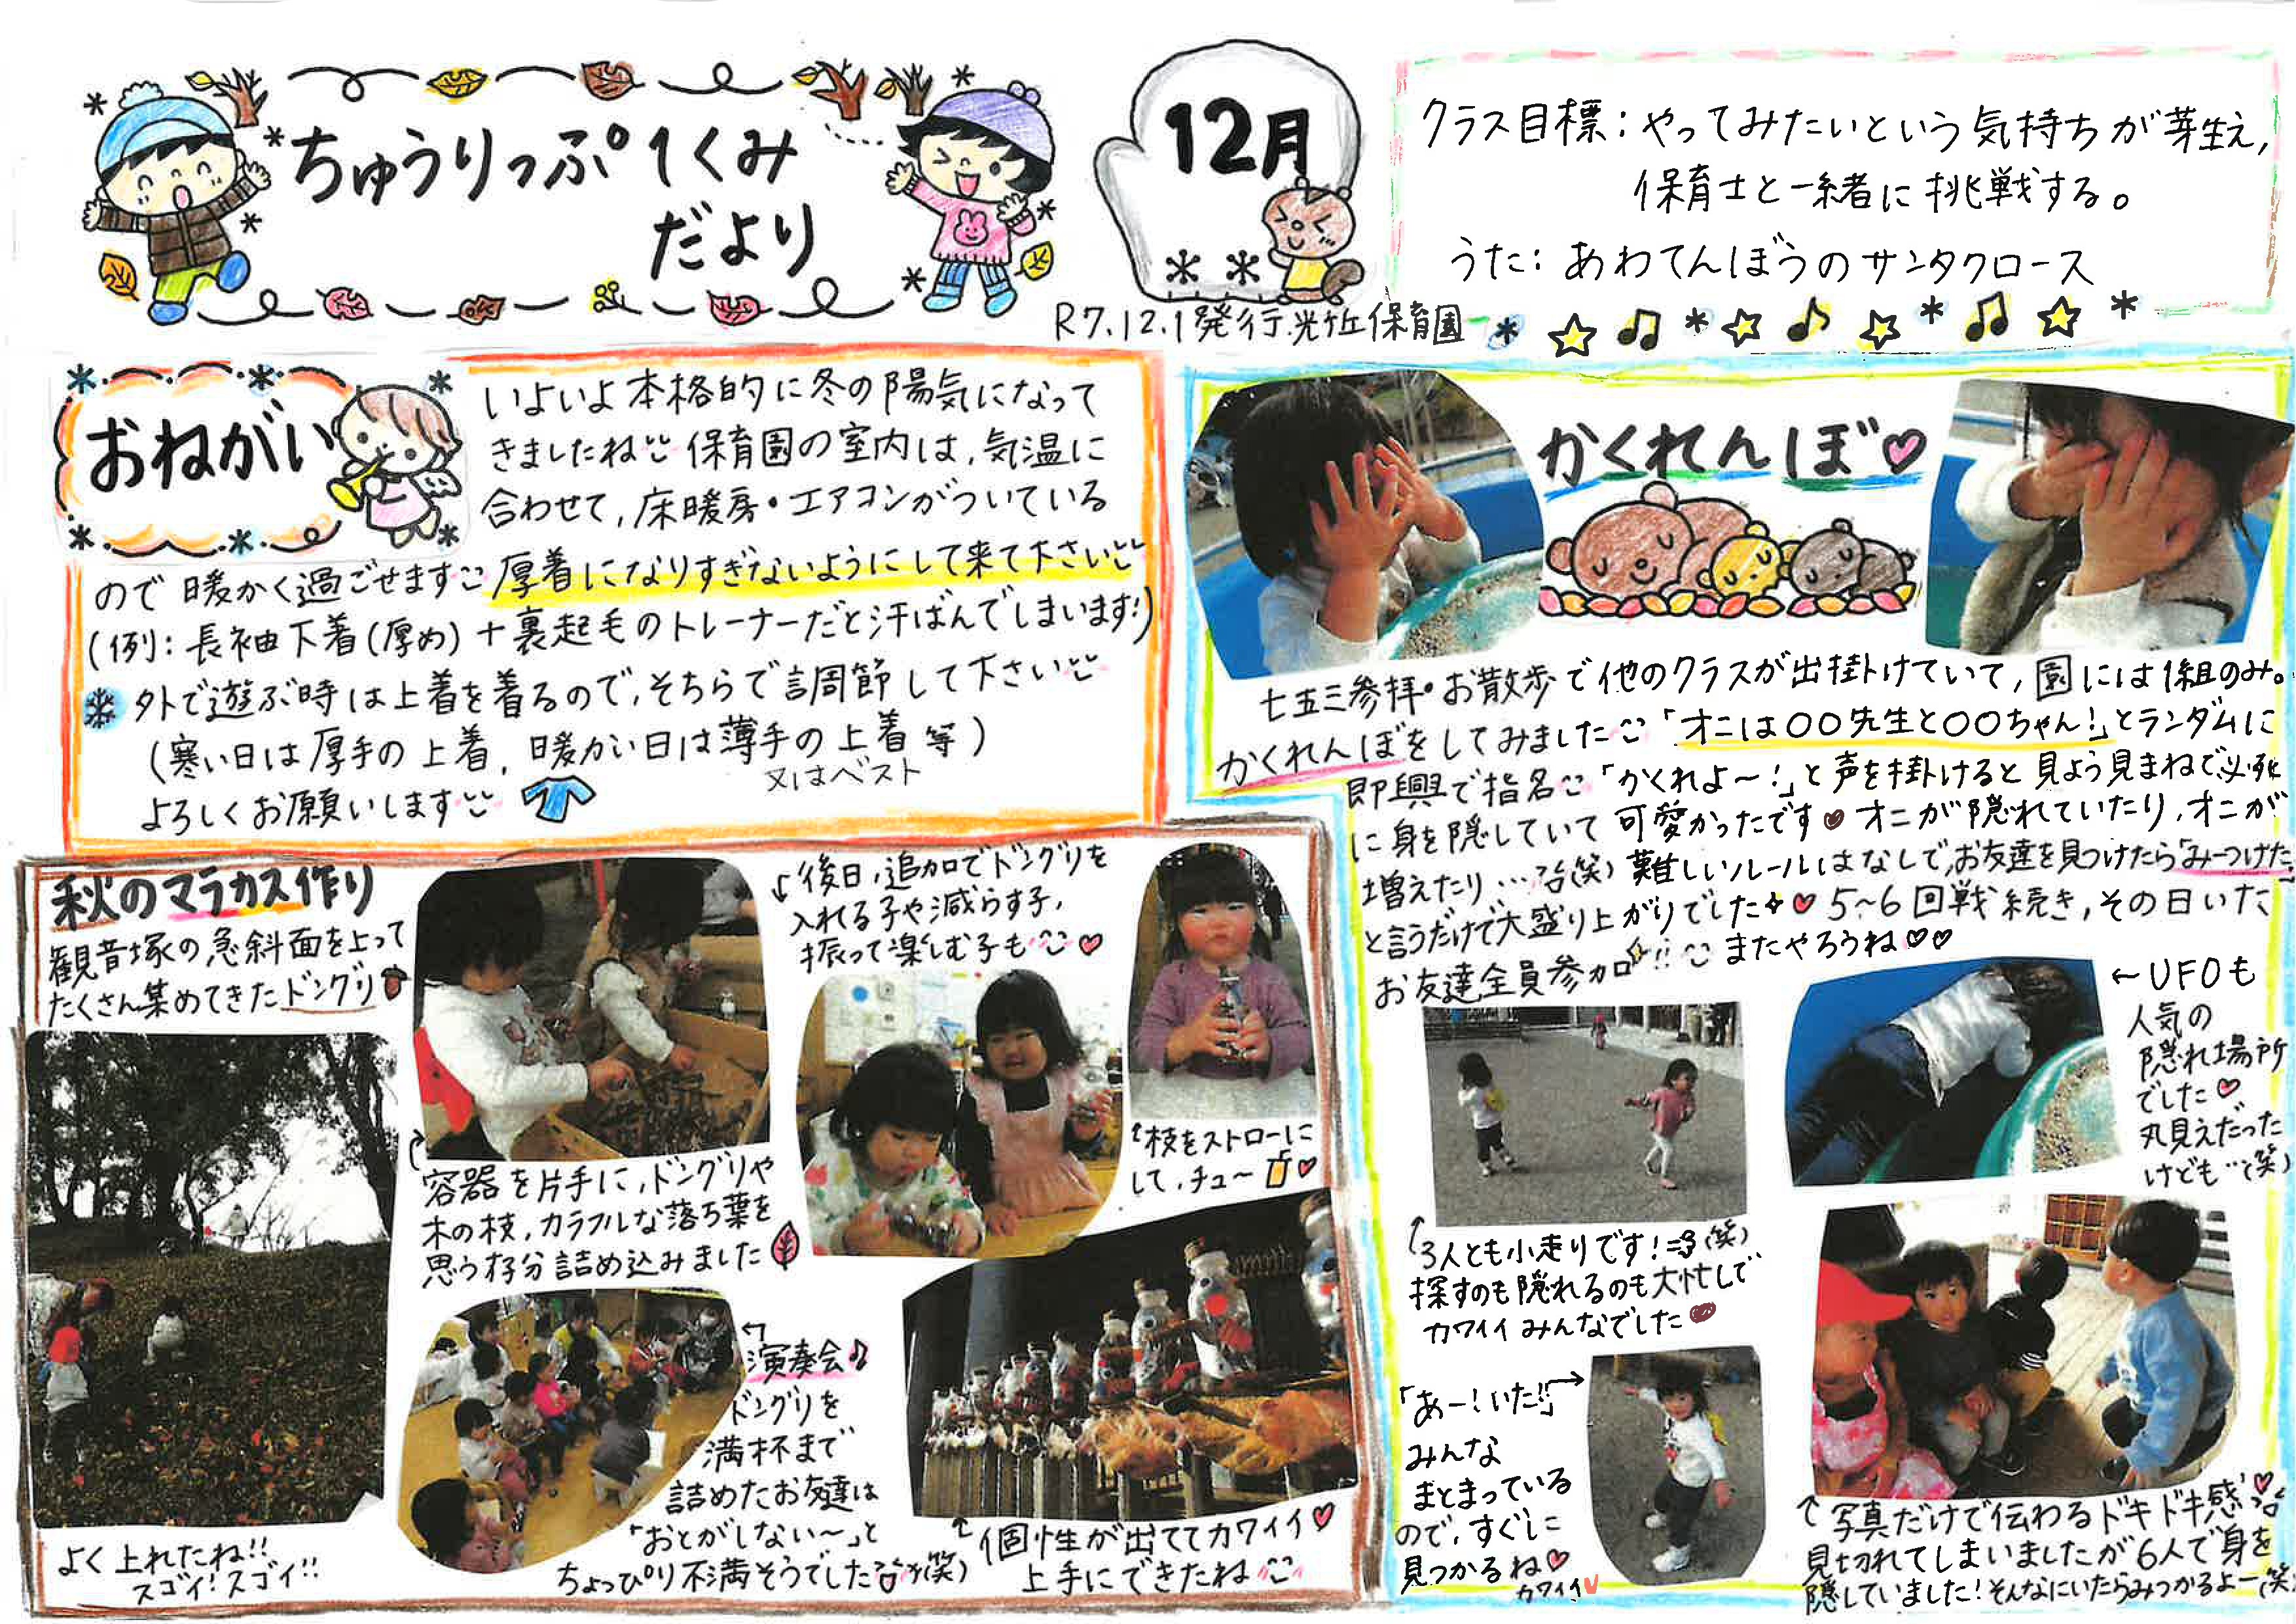 ちゅうりっぷ1くみ
だより
12月
R7.12.1発行 光丘保育園
クラス目標：やってみたいという気持ちが芽生え,
保育士と一緒に挑戦する。
うた：あわてんぼうのサンタクロース
おねがい
いよいよ本格的に冬の陽気になって
きましたね 保育園の室内は,気温に
合わせて,床暖房・エアコンがついている
ので暖かく過ごせます 厚着になりすぎないようにして来て下さい
(例：長袖下着(厚め)+裏起毛のトレーナーだと汗ばんでしまいます!)
外で遊ぶ時は上着を着るので,そちらで調節して下さい
(寒い日は厚手の上着,暖かい日は薄手の上着等)
又はベスト
よろしくお願いします
かくれんぼ♡
七五三参拝・お散歩で他のクラスが出掛けていて,園には1組のみ。
かくれんぼをしてみました「オニは〇〇先生と〇〇ちゃん!」とランダムに
即興で指名「かくれよ〜!」と声を掛けると見よう見まねで必死
に身を隠していて可愛かったです♥オニが隠れていたり,オニが
増えたり…(笑)難しいルールはなしで,お友達を見つけたら「みーつけた」
と言うだけで大盛り上がりでした♥5〜6回戦続き,その日いた
お友達全員参加!! またやろうね♡♡
←UFOも
人気の
隠れ場所
でした♡
丸見えだった
けども…(笑)
↑3人とも小走りです!(笑)
探すのも隠れるのも大忙しで
カワイイみんなでした♥
「あー!いた!!」→
みんな
まとまっている
ので,すぐに
見つかるね♡
カワイイ
↑写真だけで伝わるドキドキ感♡
見切れてしまいましたが6人で身を
隠していました!そんなにいたらみつかるよー(笑)
秋のマラカス作り
観音塚の急斜面を上って
たくさん集めてきたドングリ
よく上れたね!!
スゴイ!スゴイ!!
容器を片手に,ドングリや
木の枝,カラフルな落ち葉を
思う存分詰め込みました
後日,追加でドングリを
入れる子や減らす子,
振って楽しむ子も♡
↑枝をストローに
して,チュ〜♡
演奏会♪
ドングリを
満杯まで
詰めたお友達は
「おとがしない〜」と
ちょっぴり不満そうでした(笑)
個性が出ててカワイイ♡
上手にできたね